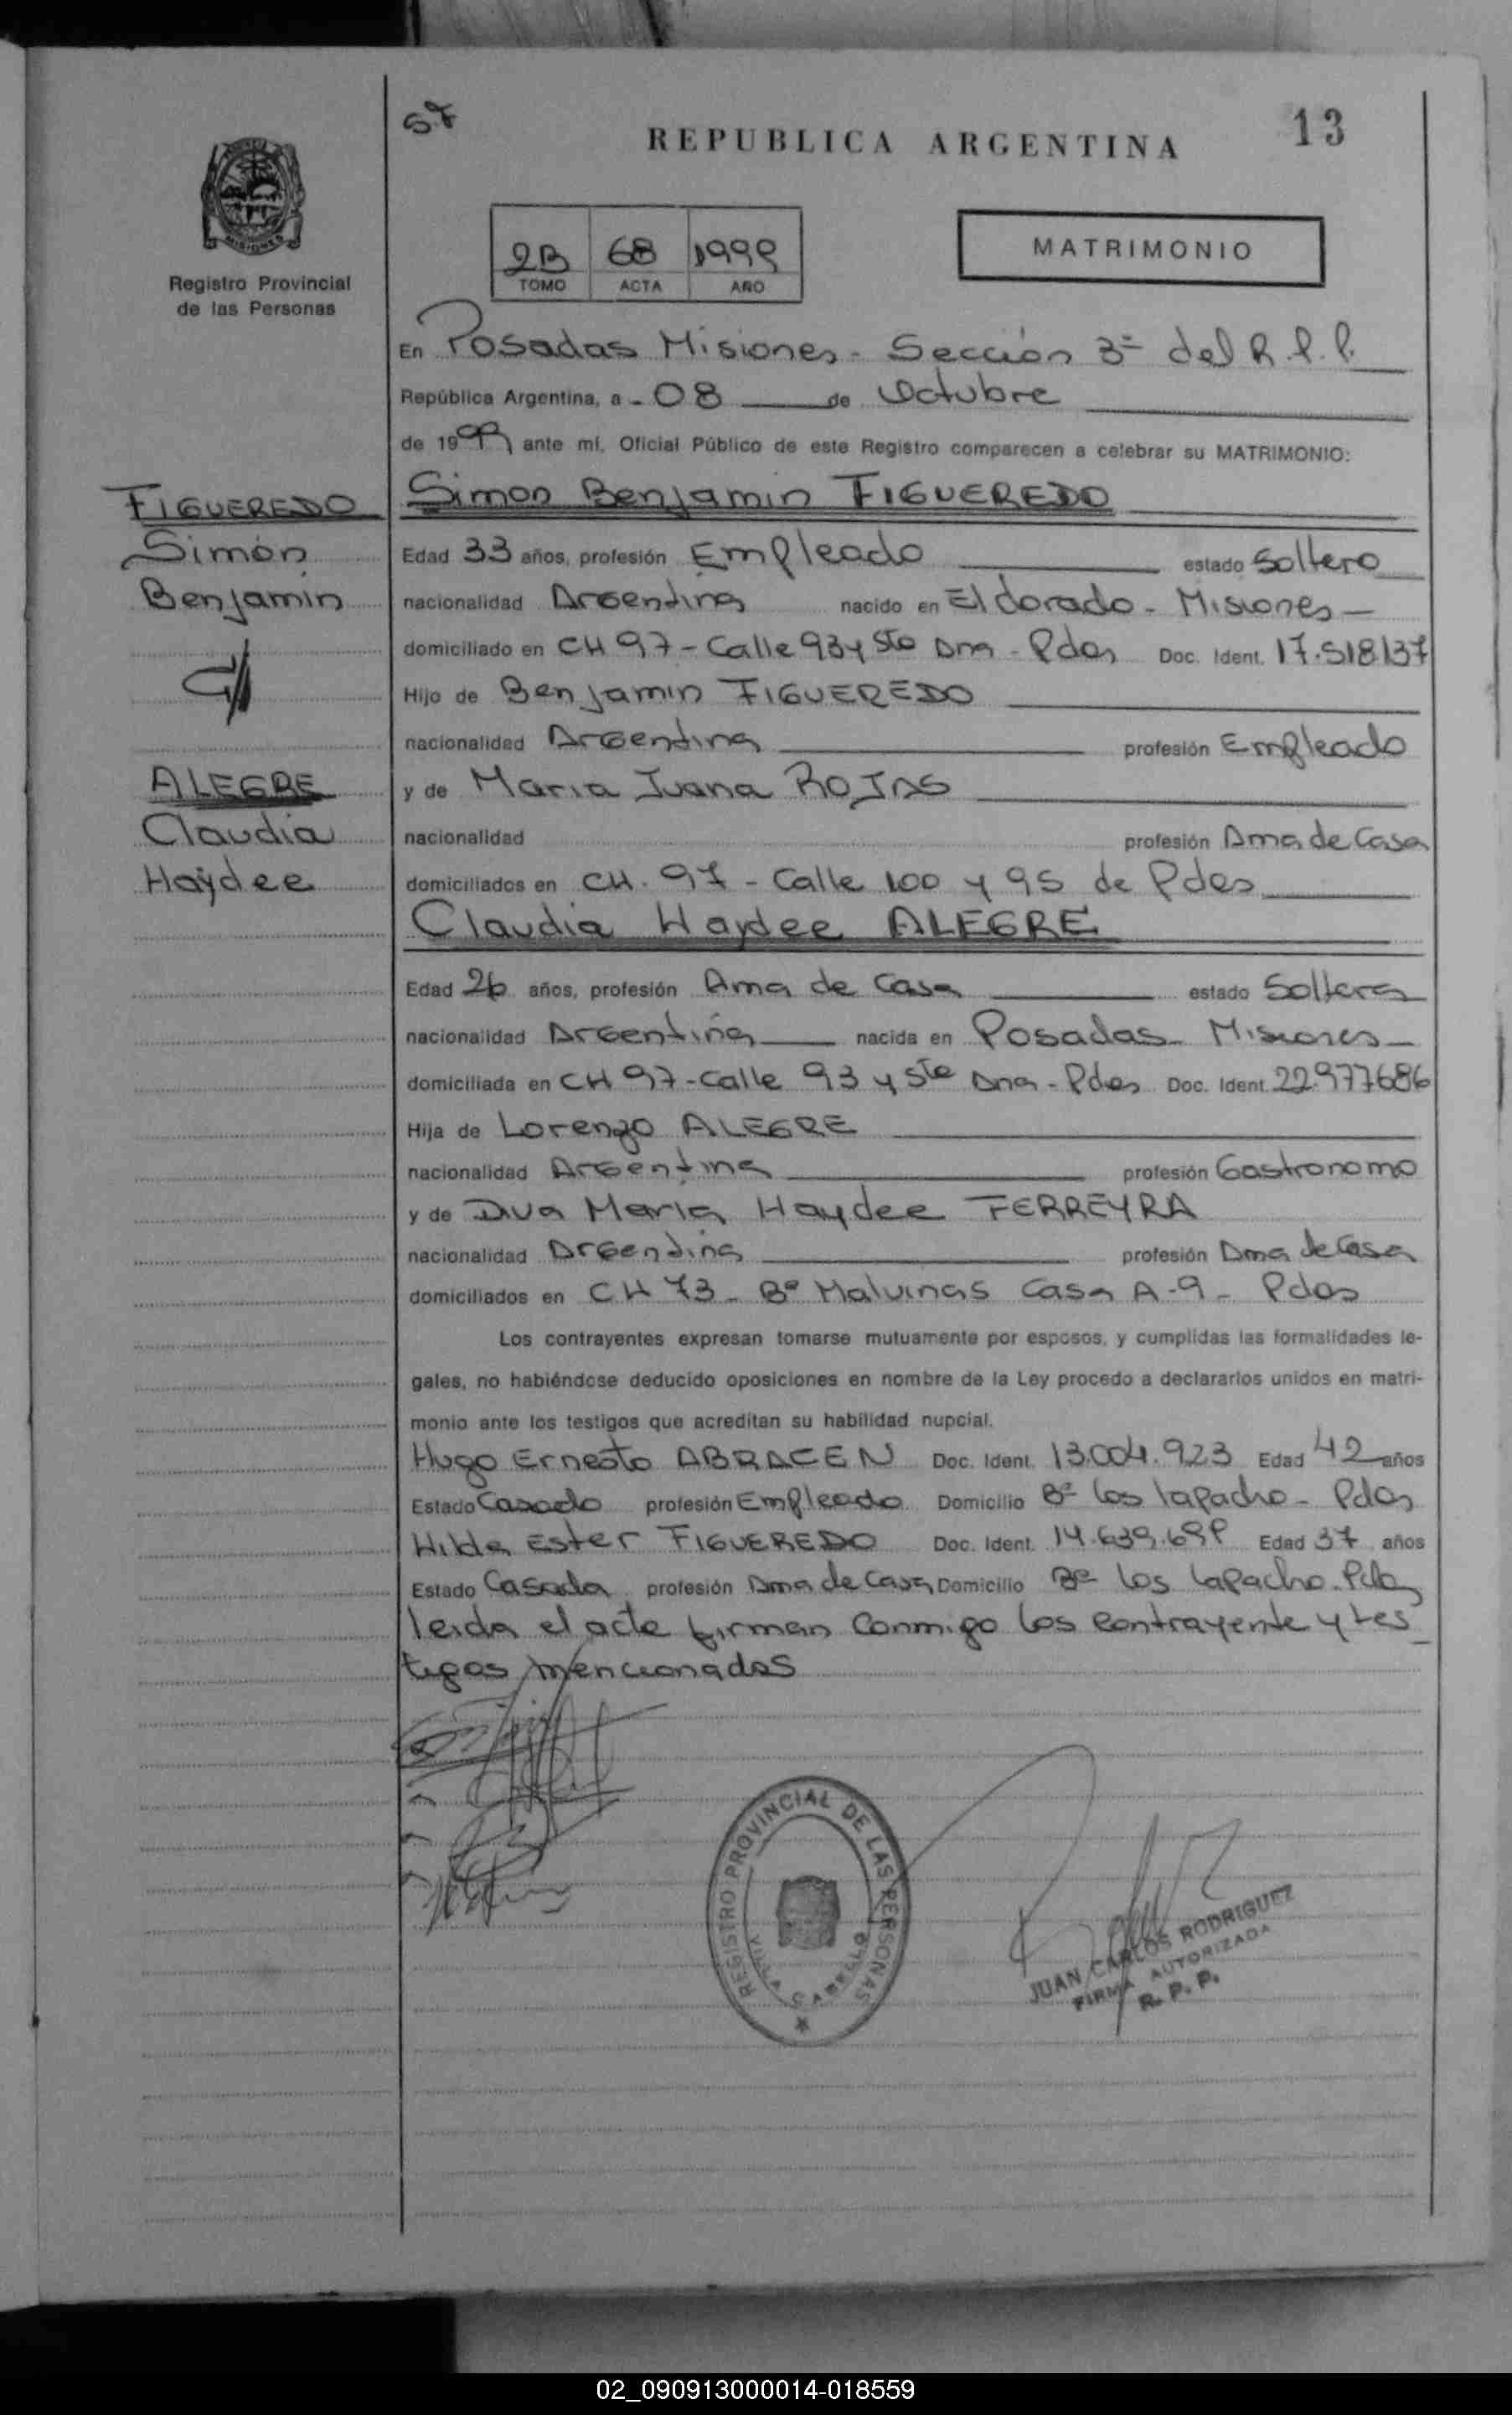 57
REPUBLICA ARGENTINA
13
MISIONES
Registro Provincial
de las Personas
2B 68 1999
TOMO ACTA AÑO
MATRIMONIO
En Posadas Misiones - Sección 3ª del R.P.P.
República Argentina, a - 08 de Octubre
de 1999 ante mí, Oficial Público de este Registro comparecen a celebrar su MATRIMONIO:
FIGUEREDO
Simón
Benjamin
ALEGRE
Claudia
Haydee
Simon Benjamin FIGUEREDO
Edad 33 años, profesión Empleado estado Soltero
nacionalidad Argentina nacido en Eldorado - Misiones -
domiciliado en CH 97 - Calle 93 y Sto Dna - Pdas Doc. Ident. 17.518137
Hijo de Benjamin FIGUEREDO
nacionalidad Argentina profesión Empleado
y de Maria Juana ROJAS
nacionalidad profesión Ama de Casa
domiciliados en CH. 97 - Calle 100 y 95 de Pdas
Claudia Haydee ALEGRE
Edad 26 años, profesión Ama de Casa estado Soltera
nacionalidad Argentina nacida en Posadas - Misiones -
domiciliada en CH 97 - Calle 93 y Sta Dna - Pdas Doc. Ident. 22.977686
Hija de Lorenzo ALEGRE
nacionalidad Argentina profesión Gastronomo
y de Diva Maria Haydee FERREYRA
nacionalidad Argentina profesión Ama de Casa
domiciliados en CH 73 - Bº Malvinas Casa A-9 - Pdas
Los contrayentes expresan tomarse mutuamente por esposos, y cumplidas las formalidades le-
gales, no habiéndose deducido oposiciones en nombre de la Ley procedo a declararlos unidos en matri-
monio ante los testigos que acreditan su habilidad nupcial.
Hugo Ernesto ABRACEN Doc. Ident. 13.004.923 Edad 42 años
Estado Casado profesión Empleado Domicilio Bº Los lapacho - Pdas
Hilda Ester FIGUEREDO Doc. Ident. 14.639.698 Edad 37 años
Estado Casada profesión Ama de Casa Domicilio Bº Los lapacho - Pdas
leida el acta firman conmigo los contrayente y tes
tigos mencionados
REGISTRO PROVINCIAL DE LAS PERSONAS
VILLA CABELLO
JUAN CARLOS RODRIGUEZ
FIRMA AUTORIZADA
R. P. P.
02_090913000014-018559